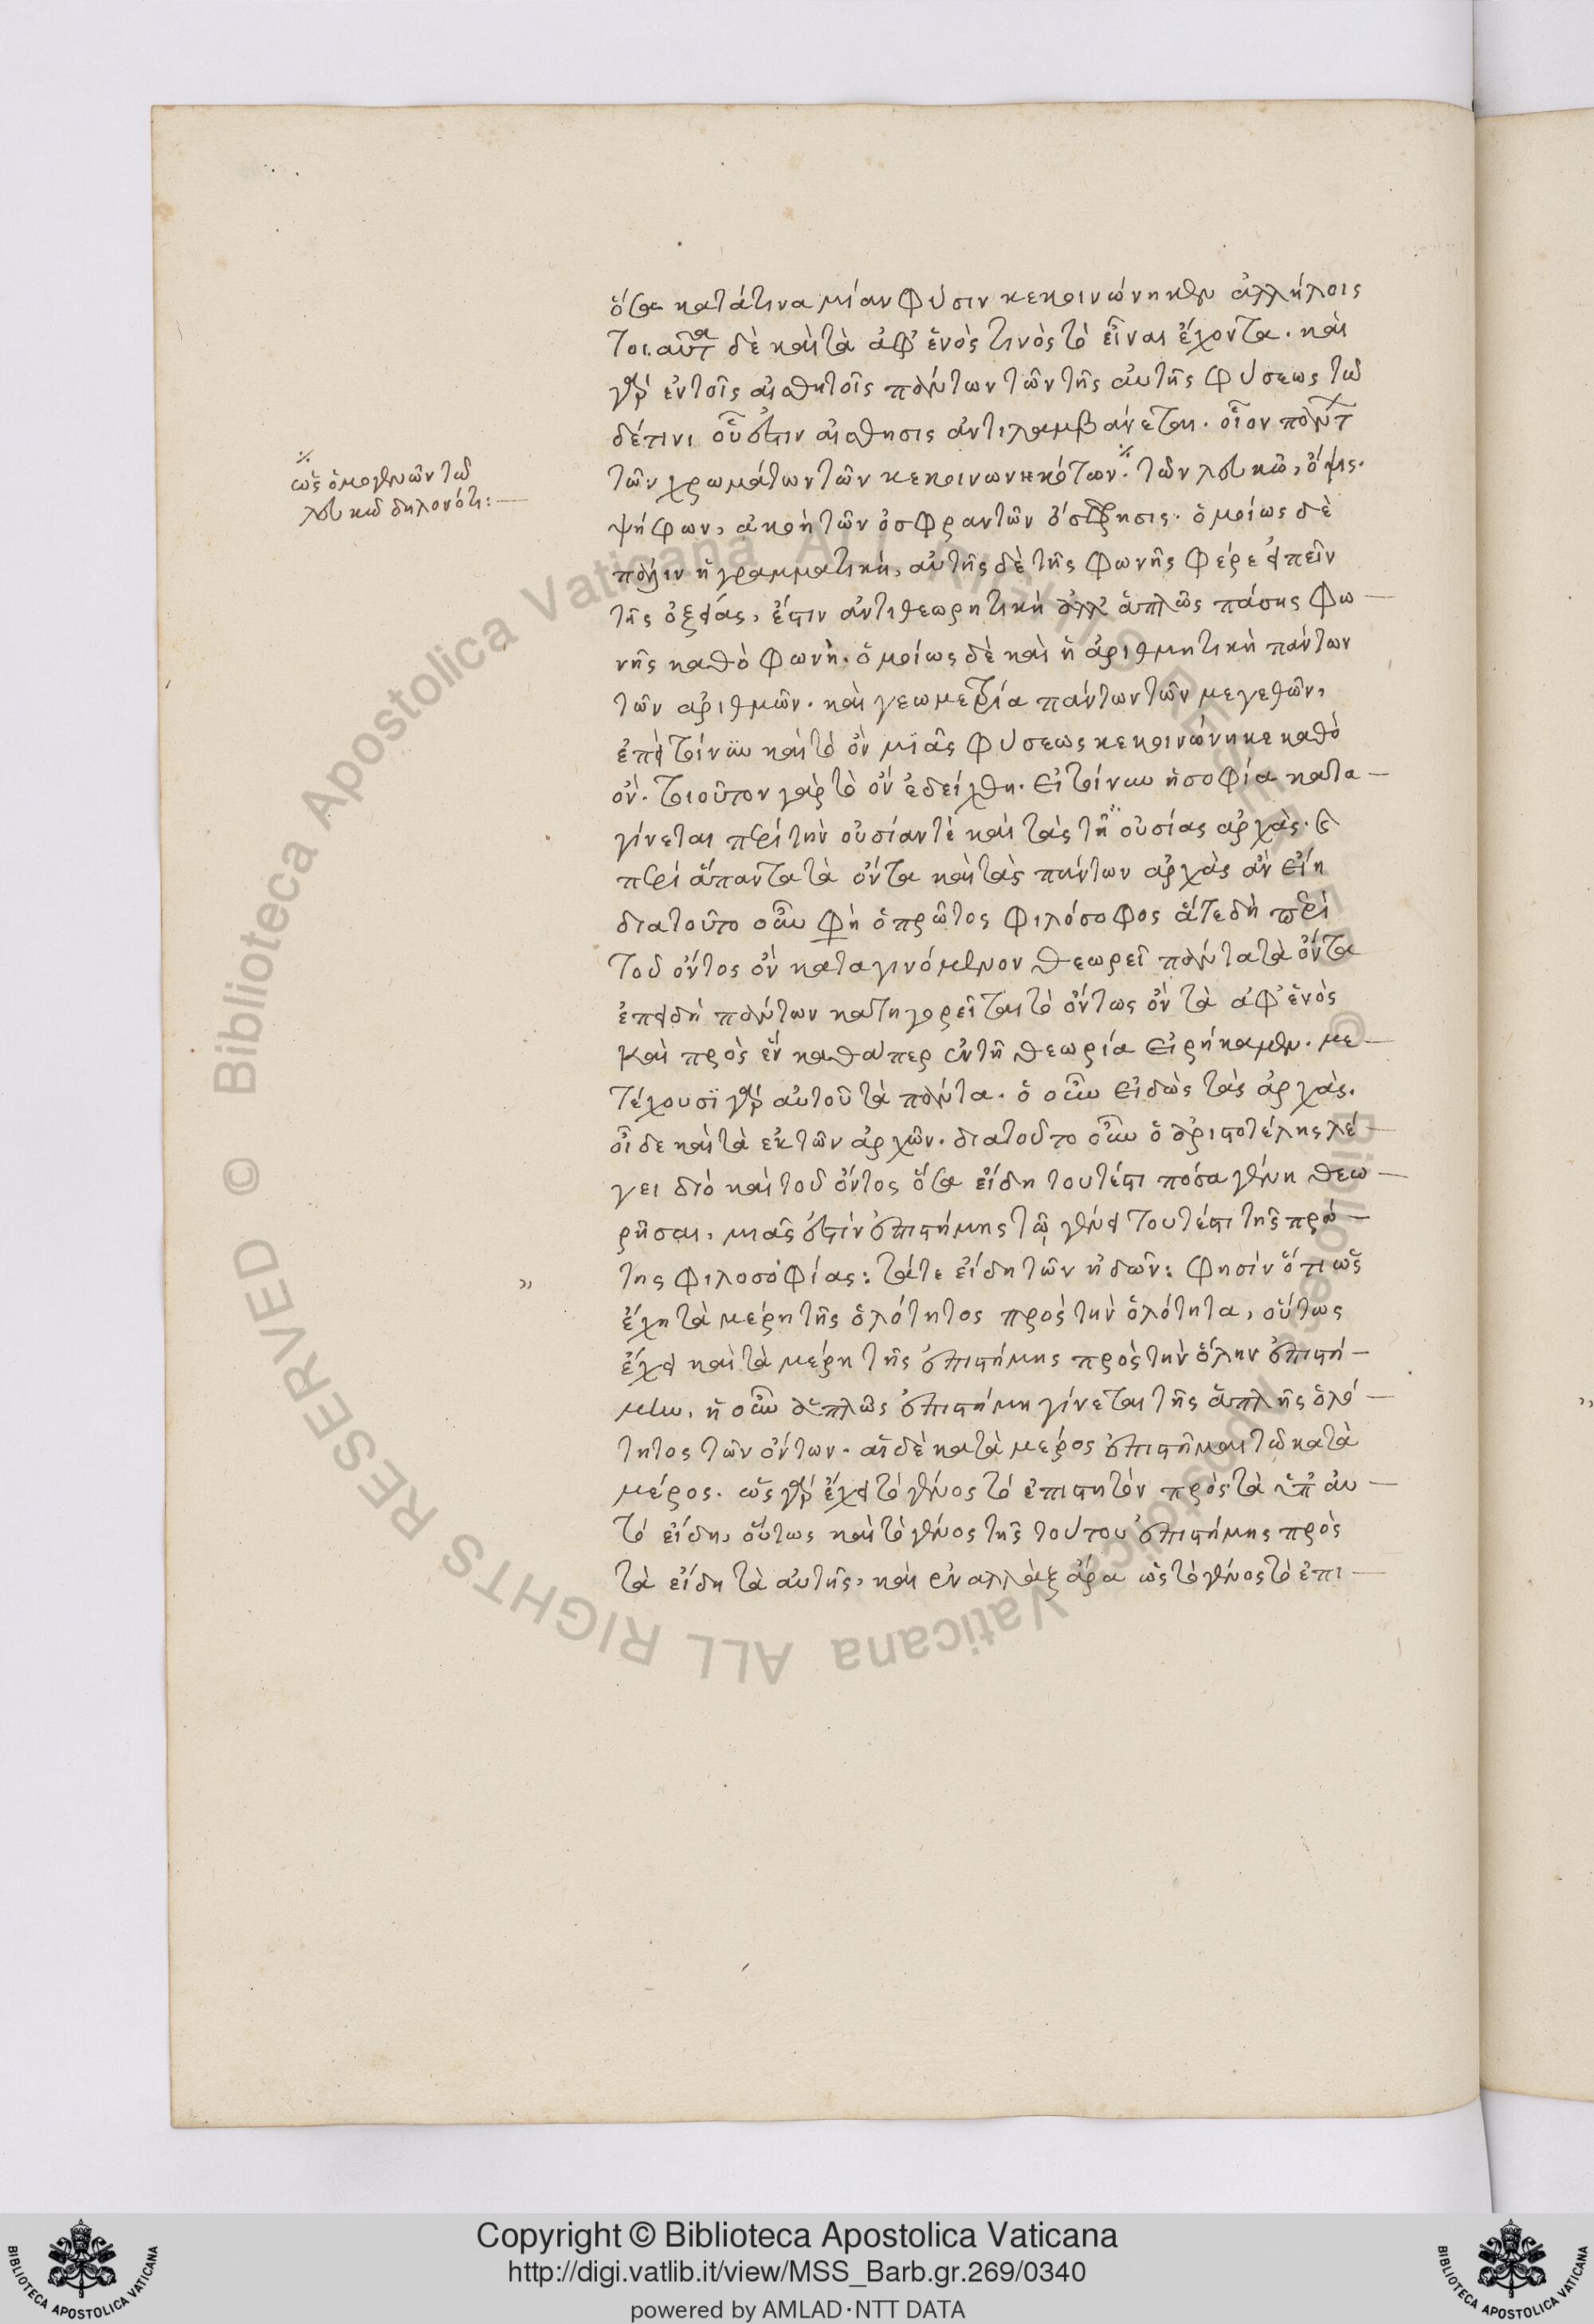 ὅσα κατάτινα μίαν φύσιν κεκοινώνηκεν ἀλλήλοις
τοιαῦτα δὲ καὶ τὰ ἀφ' ἑνὸς τινὸς τὸ εἶναι ἔχοντα. καὶ
γὰρ ἐν τοῖς αἰσθητοῖς πάντων τῶν τῆς αὐτῆς φύσεως τῶ
αἴσθησις ἀντιλαμβάνεται. οἷον πάντων
τῶν χρωμάτων τῶν κεκοινωνηκότων ⁒ τῶν λευκῶ, ὄψις.
ψήφων, ἀκοὴ τῶν ὀσφραντῶν ὄσφρησις. ὁμοίως δὲ
πάλιν ἡ γραμματικὴ, αὐτῆς δὲ τῆς φωνῆς φέρε εἰπεῖν
τῆς ὀξείας, ἔστιν ἀντιθεωρητικὴ ἀλλ' ἁπλῶς πάσης φω
νῆς καθὸ φωνὴ. ὁμοίως δὲ καὶ ἡ ἀριθμητικὴ πάντων
τῶν ἀριθμῶν. καὶ γεωμετρία πάντων τῶν μεγεθῶν,
ἐπεὶ τοίνυν καὶ τὸ ὂν μϊᾶς φύσεως κεκοινώνηκε καθὸ
ὄν. τοιοῦτον γὰρ τὸ ὂν ἐδείχθη. εἰ τοίνυν ἡ σοφία κατα
γίνεται περὶ τὴν οὐσίαν τὲ καὶ τὰς τῆς οὐσίας ἀρχὰς. καὶ
περὶ ἅπαντα τὰ ὄντα καὶ τὰς πάντων ἀρχὰς ἂν εἴη
διατοῦτο οὖν φη ὁ πρῶτος φιλόσοφος ἅτε δὴ περὶ
τοῦ ὄντος ὂν καταγινόμενον θεωρεῖ πάντα τὰ ὄντα
ἐπειδὴ πάντων κατηγορεῖται τὸ ὄντως ὂν τὰ ἀφ' ἑνὸς
καὶ πρὸς ἓν καθάπερ ἐν τῆ θεωρία εἰρήκαμεν. με
τέχουσϊ γὰρ αὐτοῦ τὰ πάντα. ὁ οὖν εἰδὼς τὰς ἀρχὰς.
οἶδε καὶ τὰ ἐκ τῶν ἀρχῶν. διατοῦτο οὖν ὁ ἀριστοτέλης λέ
γει διὸ καὶ τοῦ ὄντος ὅσα εἴδη τουτέστι πόσα γένη θεω
ρῆσαι, μιᾶς ἐστὶν ἐπιστήμης τῶ γένει τουτέστι τῆς πρώ
της φιλοσοφίας: τάτε εἴδη τῶν εἰδῶν: φησὶν ὅτι ὡς
ἔχη τὰ μέρη τῆς ὁλότητος πρὸς τὴν ὁλότητα, οὕτως
ἔχει καὶ τὰ μέρη τῆς ἐπιστήμης πρὸς τὴν ὅλην ἐπιστή
μην, ἡ οὖν ἁπλῶς ἐπιστήμη γίνεται τῆς ἁπλῆς ὁλό
τητος τῶν ὄντων. αἱ δὲ κατὰ μέρος ἐπιστῆμαι τῶ κατὰ
μέρος. ὡς γὰρ ἔχει τὸ γένος τὸ ἐπιστητὸν πρὸς τὰ ὑπ' αὐ
τὸ εἴδη, οὕτως καὶ τὸ γένος τῆς τούτου ἐπιστήμης πρὸς
τὰ εἴδη τὰ αὐτῆς, καὶ ἐναλλὰξ ἄρα ὡς τὸ γένος τὸ ἐπι
⁒
ὡς ὁμογενῶν τῶ
λευκῶ δηλονότι:
Copyright © Biblioteca Apostolica Vaticana
http://digi.vatlib.it/view/MSS_Barb.gr.269/0340
powered by AMLAD·NTT DATA
BIBLIOTECA APOSTOLICA VATICANA
BIBLIOTECA APOSTOLICA VATICANA
© Biblioteca Apostolica Vaticana ALL RIGHTS RESERVED
© Biblioteca Apostolica Vaticana ALL RIGHTS RESERVED